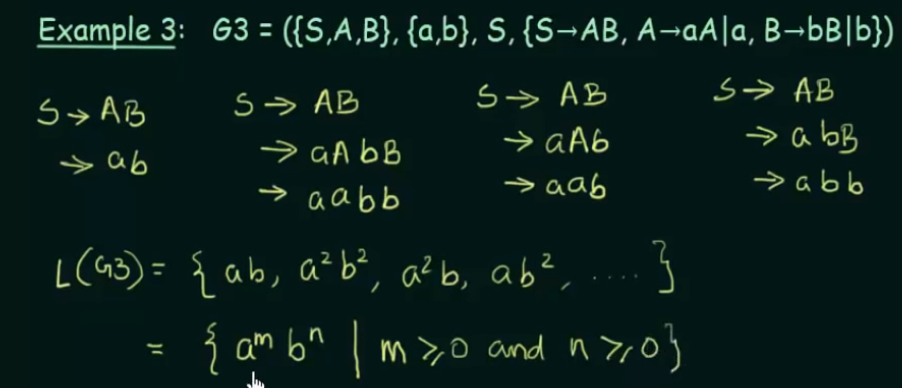 Example 3: G3 = ({S,A,B}, {a,b}, S, {S→AB, A→aA|a, B→bB|b})
S → AB S → AB S → AB S → AB
→ ab → aAbB → aAb → abB
→ aabb → aab → abb
L(G3) = { ab, a²b², a²b, ab², .... }
= { aᵐ bⁿ | m ⩾ 0 and n ⩾ 0 }